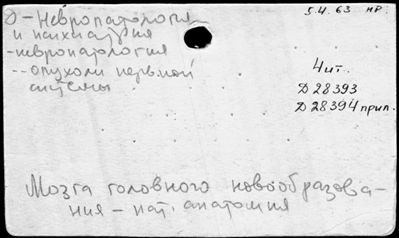 О - Невропатология
и психиатрия
- невропатология
-- опухоли нервной
системы
5.4.63 НР.
Чит.
Д 28393
Д 28394 прил.
Мозга головного новообразова-
ния - пат. анатомия